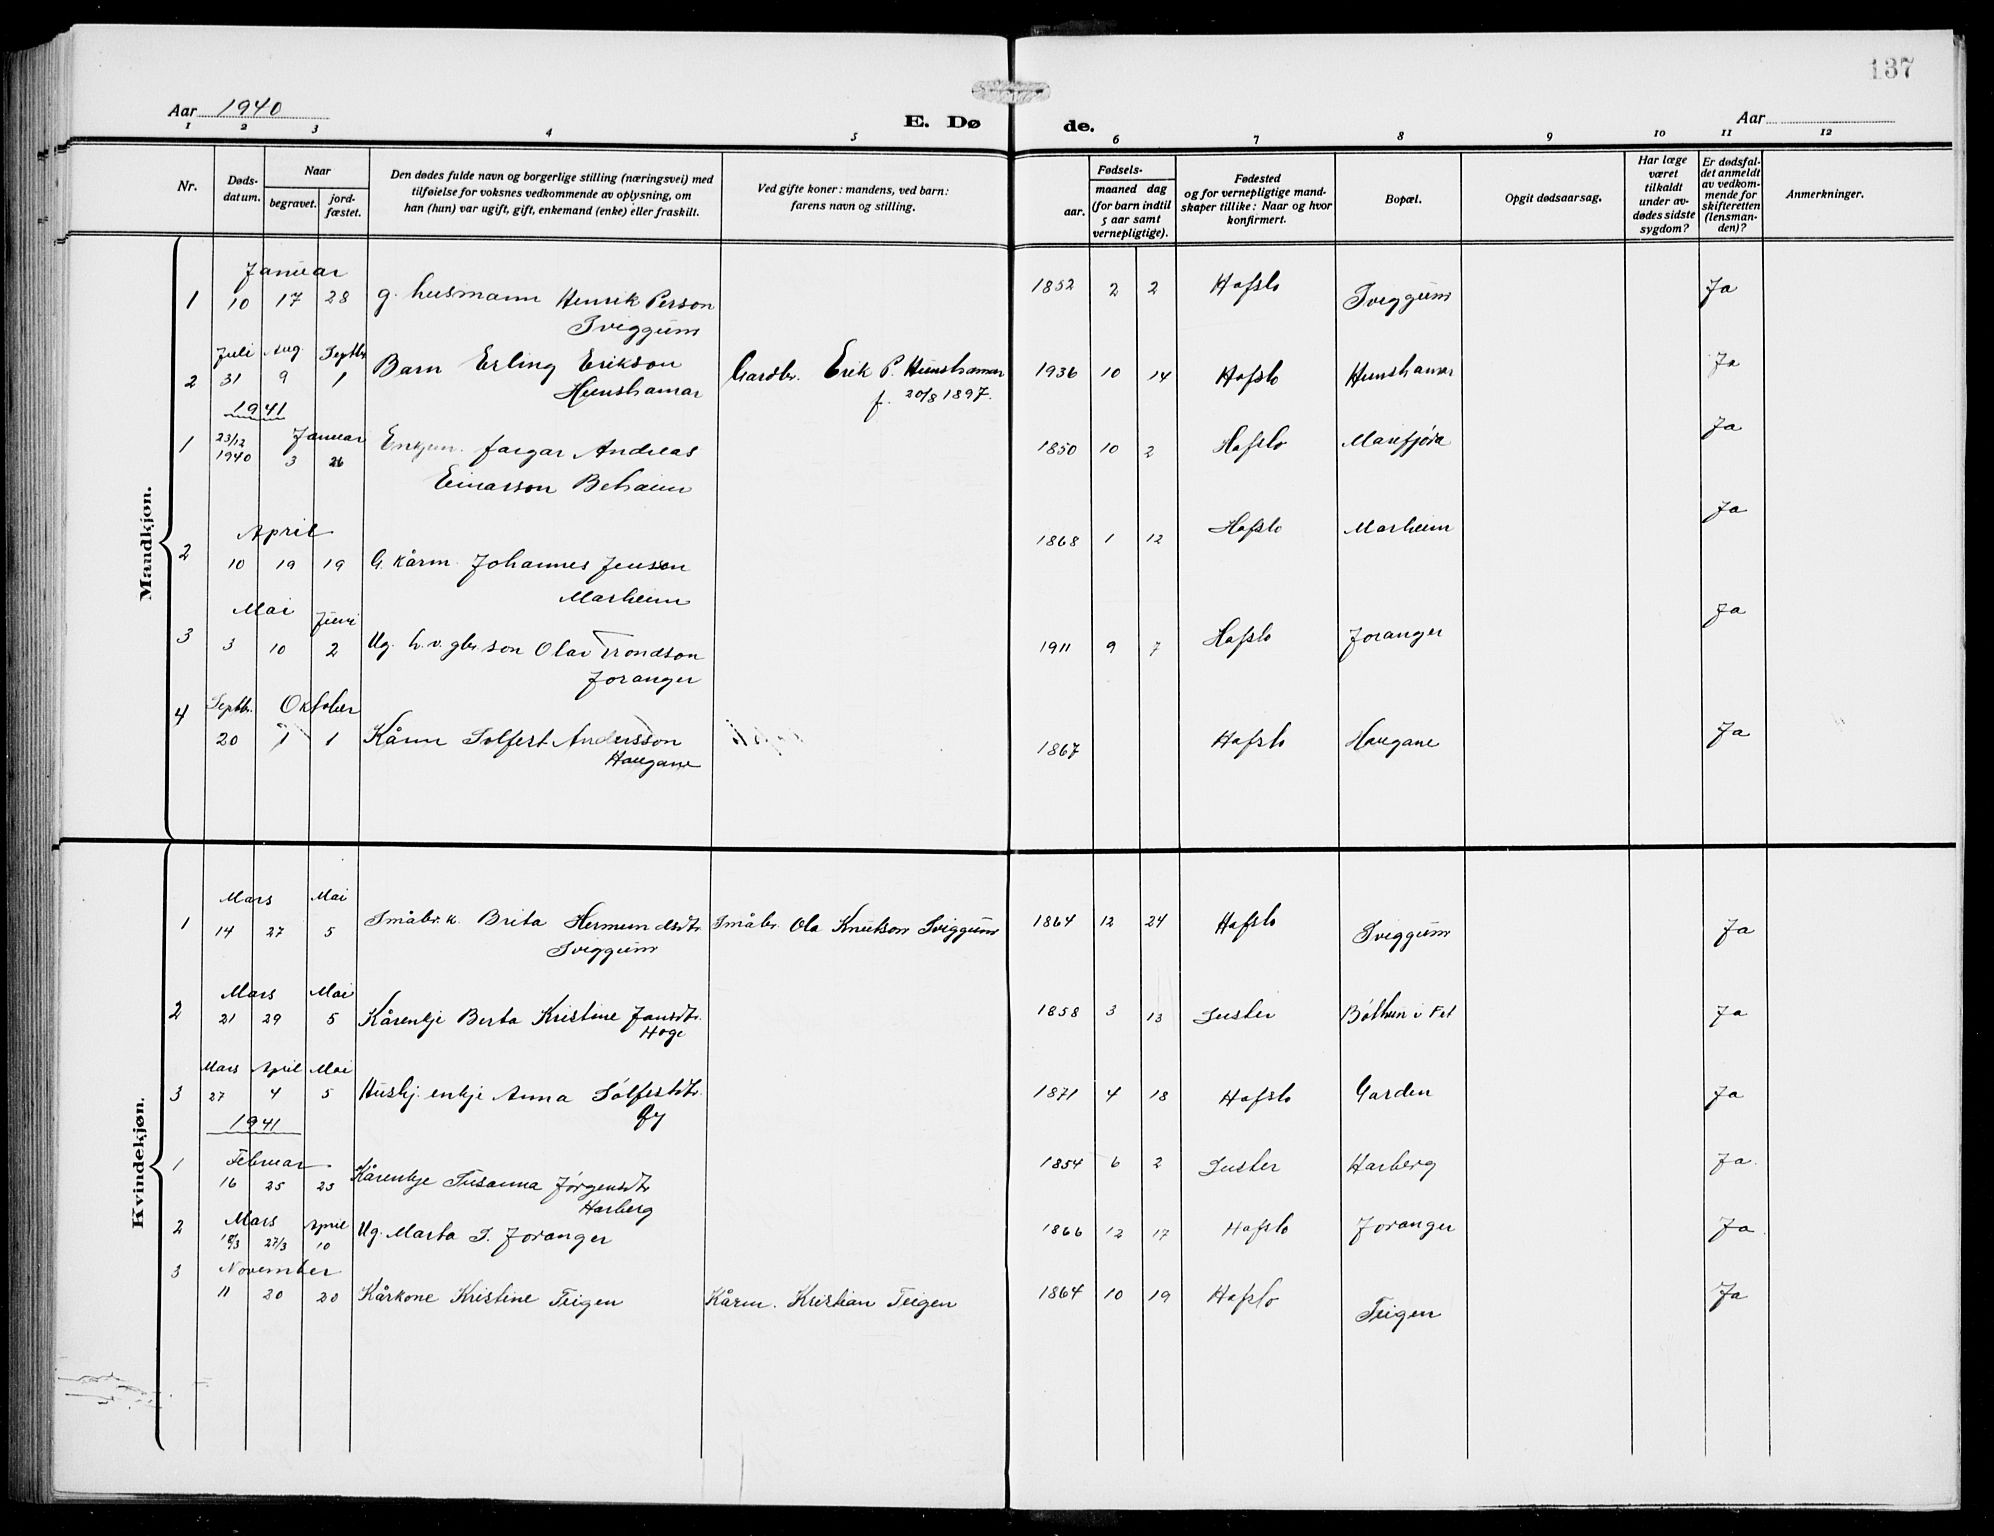 137
Aar 1940
E. Dø de.
Aar
1 2 3 4 5 6 7 8 9 10 11 12
Nr.
Døds-
datum.
Naar
begravet.
jord-
fæstet.
Den dødes fulde navn og borgerlige stilling (næringsvei) med
tilføielse for voksnes vedkommende av oplysning, om
han (hun) var ugift, gift, enkemand (enke) eller fraskilt.
Ved gifte koner: mandens, ved barn:
farens navn og stilling.
Fødsels-
aar.
maaned dag
(for barn indtil
5 aar samt
vernepligtige).
Fødested
og for vernepligtige mand-
skaper tillike: Naar og hvor
konfirmert.
Bopæl.
Opgit dødsaarsag.
Har læge
været
tilkaldt
under av-
dødes sidste
sygdom?
Er dødsfal-
det anmeldt
av vedkom-
mende for
skifteretten
(lensman-
den)?
Anmerkninger.
Mandkjøn.
Januar
1 10 17 28 g. husmann Henrik Person 1852 2 2 Hafslo Sviggum Ja
Sviggum
Juli Aug. Septbr
2 31 9 1 Barn Erling Erikson Gardbr. Erik P. Hunshamar 1936 10 14 Hafslo Hunshamar Ja
Hunshamar f. 20/8 1897.
1941
1 23/12 Januar
1940 3 26 Enkjem. fargar Andreas 1850 10 2 Hafslo Marifjøra Ja
Einarson Beheim
April
2 10 19 19 G. kårm. Johannes Jensen 1868 1 12 Hafslo Marheim Ja
Marheim
Mai Juni
3 3 10 2 Ug. h.v. gbr. son Olav Trondson 1911 9 7 Hafslo Joranger Ja
Joranger
Septbr. Oktober
4 20 1 1 Kårm Solfest Andersson 1867 Hafslo Haugane Ja
Haugane
Kvindekjøn.
Mars Mai
1 14 27 5 Småbr.k. Brita Hermundsdtr. Småbr. Ola Knutson Sviggum 1864 12 24 Hafslo Sviggum Ja
Sviggum
Mars Mai
2 21 29 5 Kårenkje Berta Kristine Jansdtr. 1858 3 13 Luster Bøthun i Fet Ja
Høge
Mars April Mai
3 27 4 5 Huskj. enkje Anna Solfestdtr. 1871 4 18 Hafslo Garden Ja
Øy
1941
Februar
1 16 25 23 Kårenkje Susanna Jørgensdtr 1854 6 2 Luster Harberg Ja.
Harberg
Mars April
2 18/3 27/3 10 Ug. Marta S. Joranger 1866 12 17 Hafslo Joranger Ja.
November
3 11 20 20 Kårkone Kristine Teigen Kårm. Kristian Teigen 1864 10 19 Hafslo Teigen Ja